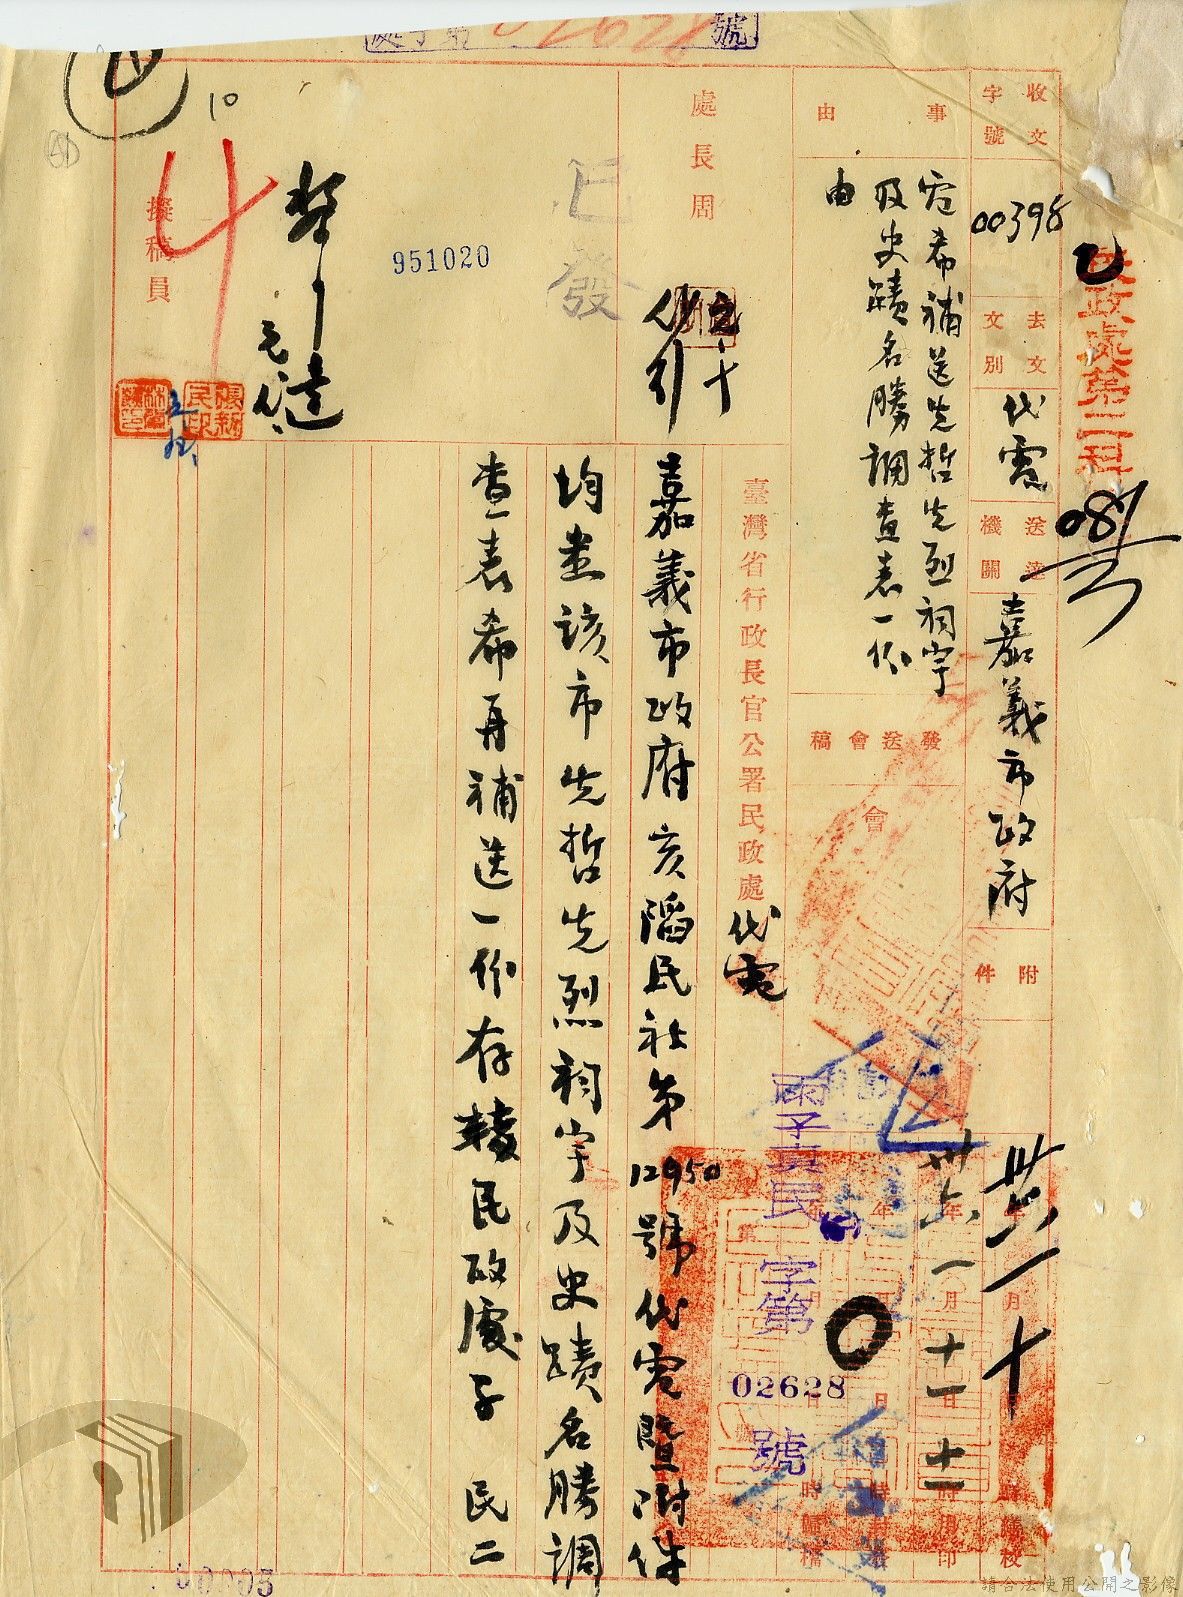 號
02628
收文字號
00398
去文文別
代電
送達機關
嘉義市政府
附件
民政處第二科
事由
電希補送先哲先烈祠宇
及史蹟名勝調查表一份
由
發送會稿
會
卅六年一月十
卅六年一月十一日十一時用印
處長周
已發
951020
擬稿員
10
臺灣省行政長官公署民政處代電
字第02628號
嘉義市政府亥陷民社第12950號代電暨附件
均悉該市先哲先烈祠宇及史蹟名勝調
查表希再補送一份存轉民政處子 民二
請合法使用公開之影像